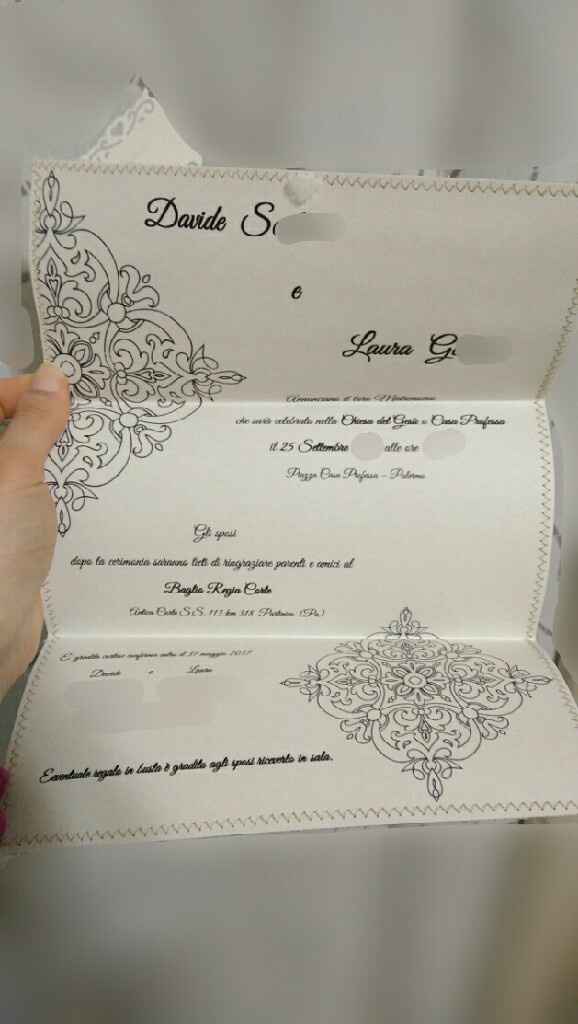 Davide S
e
Laura G
Annunciano il loro Matrimonio
che sarà celebrato nella Chiesa del Gesù o Casa Professa
il 25 Settembre alle ore
Piazza Casa Professa - Palermo
Gli sposi
dopo la cerimonia saranno lieti di ringraziare parenti e amici al
Baglio Regia Corte
Antica Corte S.S. 113 km 318 Partinico (Pa)
E' gradita cortese conferma entro il 31 maggio 2017
Davide e Laura
Eventuale regalo in busta è gradito agli sposi riceverlo in sala.